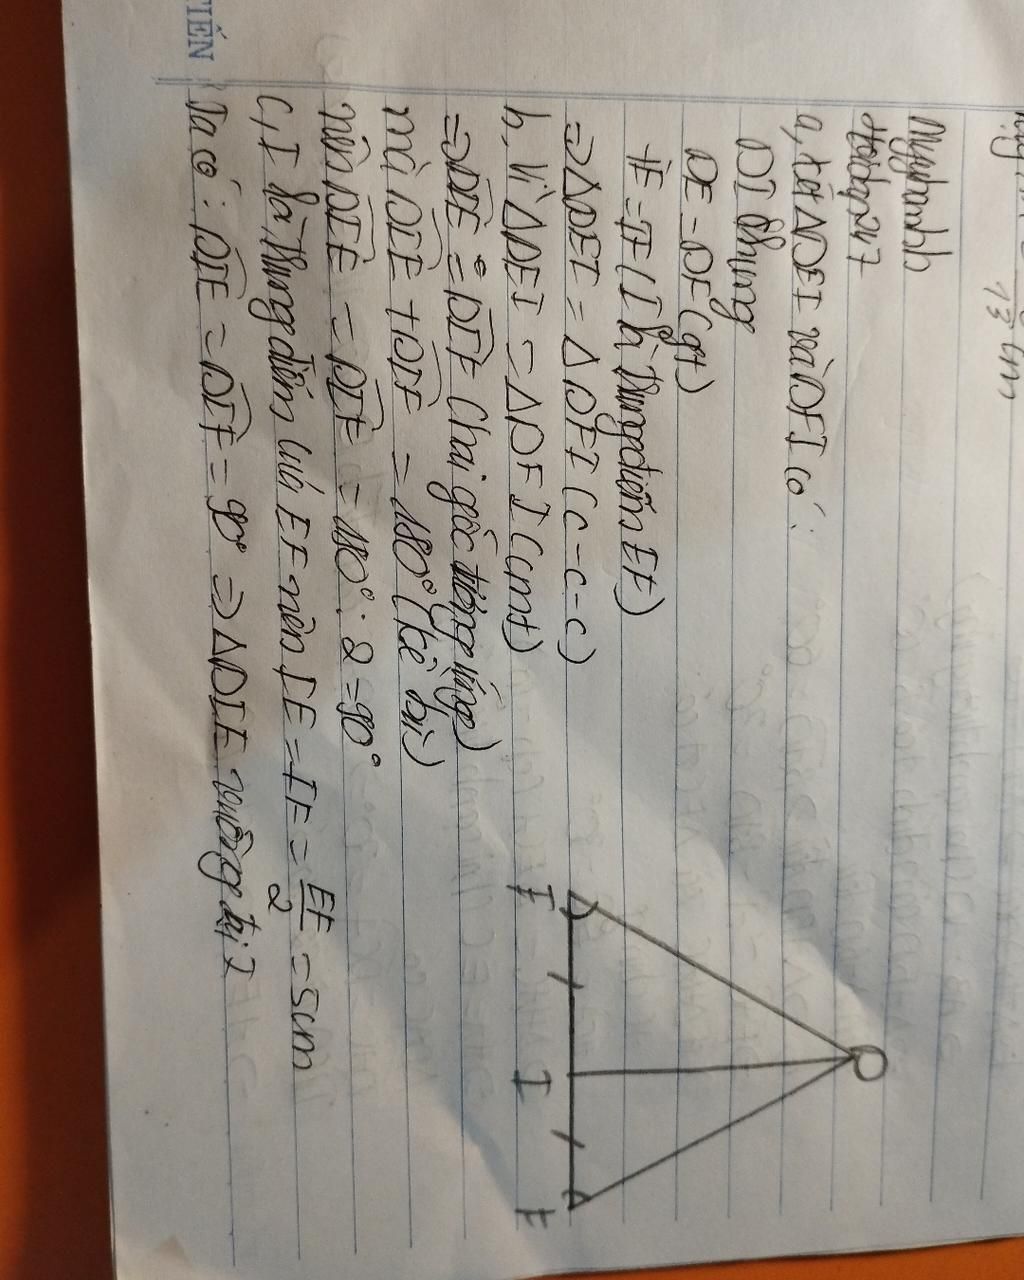 13 cm
a, xét ΔDEI và DFI có:
DI chung
DE = DF (gt)
IE = IF (I là trung điểm EF)
=> ΔDEI = ΔDFI (c-c-c)
b, Vì ΔDEI = ΔDFI (cmt)
=> DIE = DIF (hai góc tương ứng)
mà DIE + DIF = 180° (kề bù)
nên DIE = DIF = 180° : 2 = 90°
C, I là trung điểm EF nên IE = IF = EF/2 = 5cm
Ta có: DIE = DIF = 90° => ΔDIE vuông tại I
D
E
I
F
TIẾN